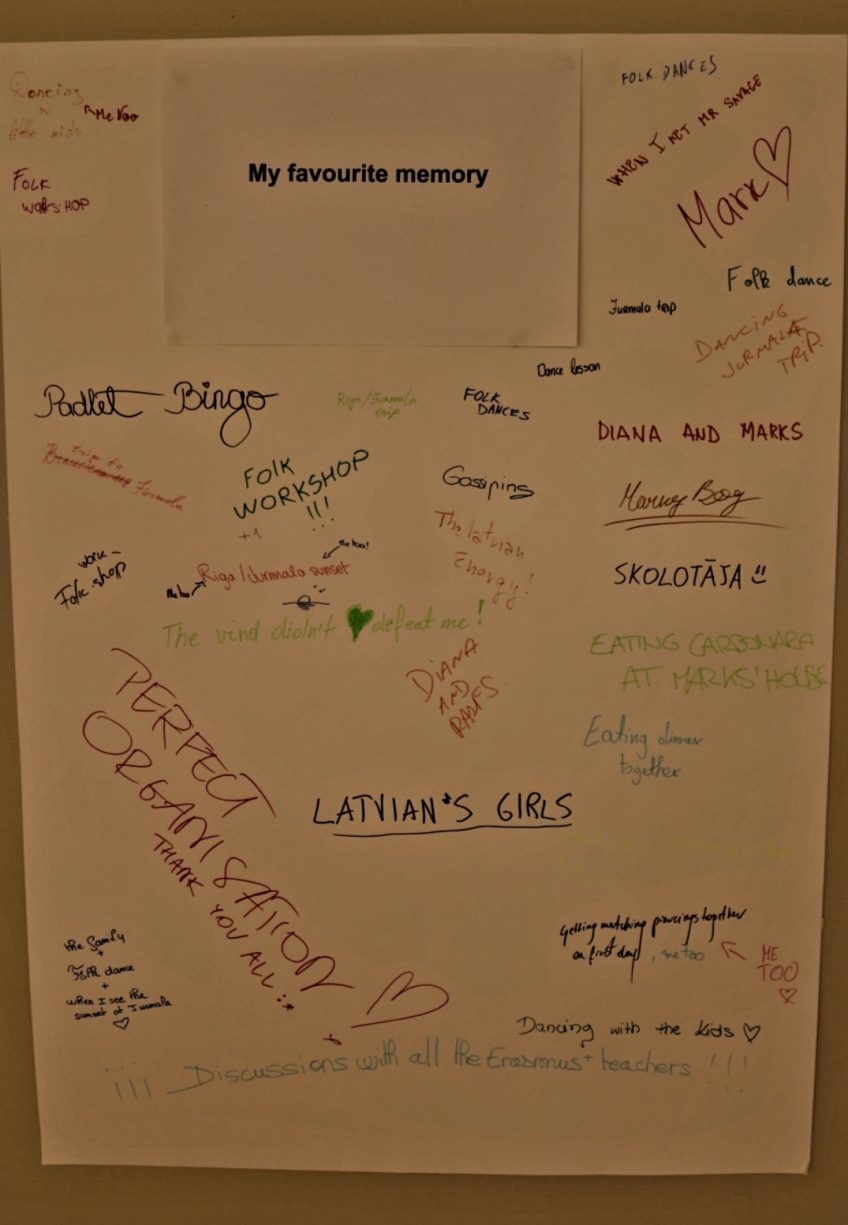 My favourite memory
Dancing
w
little kids
Me too
FOLK
WORKSHOP
FOLK DANCES
WHEN I MET MR SAVAGE
Mark ♡
Folk dance
Jurmala trip
DANCING
JURMALA
TRIP.
Dance lesson
Padlet Bingo
Riga/Jurmala
trip
FOLK
DANCES
DIANA AND MARKS
trip to
Jurmala
FOlK
WORKSHOP
!!!
+1
Gossiping
The latvian
Energy!
SKOLOTĀJA
work-
Folk-shop
Me too!
Riga/Jurmala sunset
Me too
The vind didn't ♥ defeat me!
EATING CARBONARA
AT MARKS' HOUSE
DIANA
AND
RALFS
Eating dinner
together
PERFECT
ORGANISATION
THANK YOU ALL :*
LATVIAN'S GIRLS
the family
+
Folk dance
+
when I see the
sunset at Jurmala
♡
Getting matching piercings together
on first day, me too
ME
TOO
♡
Dancing with the kids ♡
!!! Discussions with all the Erasmus+ teachers !!!